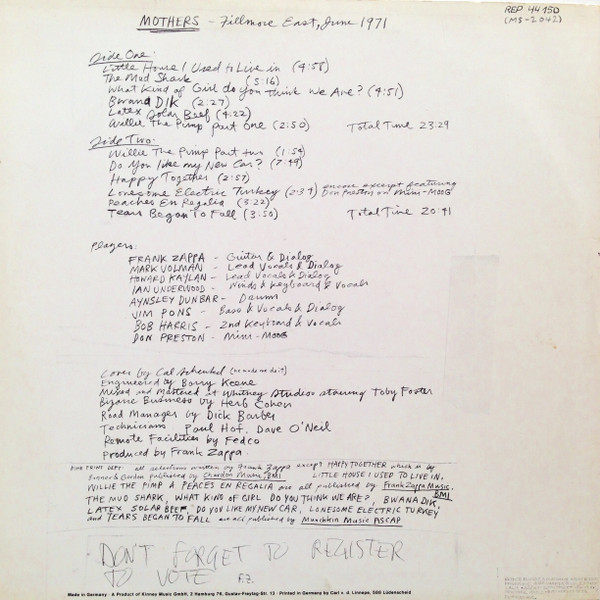 MOTHERS - Fillmore East, June 1971
REP 44 150
(MS-2042)
Side One:
Little House I Used to Live in (4:58)
The Mud Shark (5:16)
What Kind of Girl do you Think We Are? (4:51)
Bwana Dik (2:27)
Latex Solar Beef (4:22)
Willie The Pimp Part One (2:50) Total Time 23:29
Side Two:
Willie The Pimp Part two (1:54)
Do You like my New Car? (7:49)
Happy Together (2:57)
Lonesome Electric Turkey (2:34) encore excerpt featuring Don Preston on Mini-MOOG
Peaches En Regalia (3:22)
Tears Began To Fall (3:50) Total Time 20:41
Players:
FRANK ZAPPA - Guitar & Dialog
MARK VOLMAN - Lead Vocals & Dialog
HOWARD KAYLAN - Lead Vocals & Dialog
IAN UNDERWOOD - Winds & Keyboard & Vocals
AYNSLEY DUNBAR - Drums
JIM PONS - Bass & Vocals & Dialog
BOB HARRIS - 2nd Keyboard & Vocals
DON PRESTON - Mini-MOOG
Cover by Cal Schenkel (he made me do it)
Engineered by Barry Keene
Mixed and Mastered at Whitney Studios starring Toby Foster
Bizarre Business by Herb Cohen
Road Manager by Dick Barber
Technicians Paul Hof, Dave O'Neil
Remote Facilities by Fedco
Produced by Frank Zappa.
FINE PRINT DEPT: all selections written by Frank Zappa except HAPPY TOGETHER which is by
Bonner & Gordon published by Chardon Music, BMI LITTLE HOUSE I USED TO LIVE IN,
WILLIE THE PIMP & PEACES EN REGALIA are all published by Frank Zappa Music, BMI
THE MUD SHARK, WHAT KIND OF GIRL DO YOU THINK WE ARE?, BWANA DIK,
LATEX SOLAR BEEF, DO YOU LIKE MY NEW CAR, LONESOME ELECTRIC TURKEY
and TEARS BEGAN TO FALL are all published by Munchkin Music ASCAP
DON'T FORGET TO REGISTER
TO VOTE F.Z.
Made in Germany · A Product of Kinney Music GmbH, 2 Hamburg 76, Gustav-Freytag-Str. 13 · Printed in Germany by Carl v. d. Linnepe, 588 Lüdenscheid